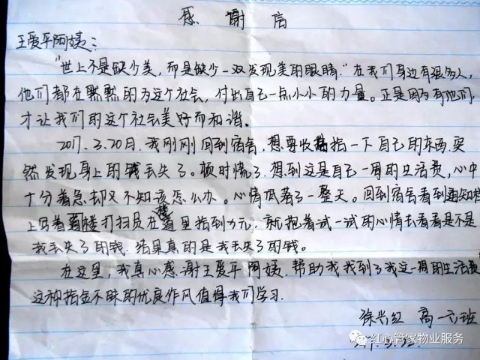 感谢信
王爱平阿姨：
"世上不是缺少美，而是缺少一双发现美的眼睛."在我们身边有很多人，
他们都在默默的为这个社会，付出自己一点小小的力量。正是因为有他们，
才让我们的这个社会美好而和谐。
2017.3.20日，我刚刚回到宿舍，想要收拾一下自己的东西，突
然发现身上的钱丢失了。顿时慌了，想到这是自己一周的生活费，心中
十分着急却又不知该怎么办。心情低落了一整天。回到宿舍看到通知栏
上写着 楼打扫员在 里拾到 元，就抱着试一试的心情去看看是不是
我丢失了的钱，结果真的是我丢失了的钱。
在这里，我真心感谢王爱平阿姨，帮助我找到了我这一周的生活费
这种拾金不昧的优良作风值得我们学习.
徐兴红 高一六班
红 管家物业服务